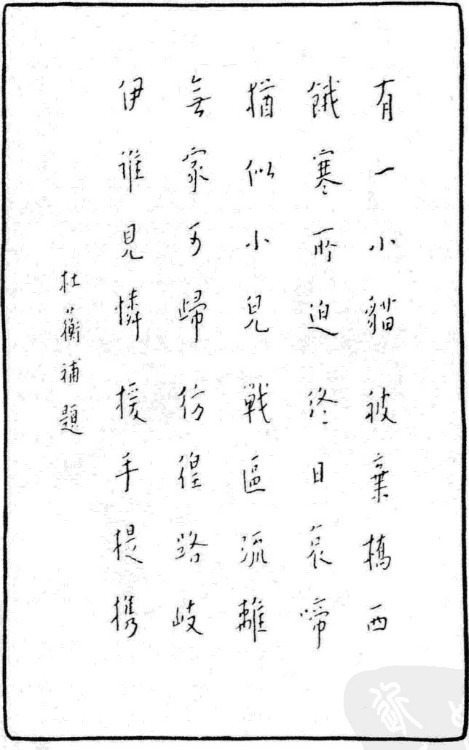 有一小貓被棄橋西
餓寒所迫終日哀啼
猶似小兒戰區流離
無家可歸彷徨路歧
伊誰見憐援手提携
杜蘅補題